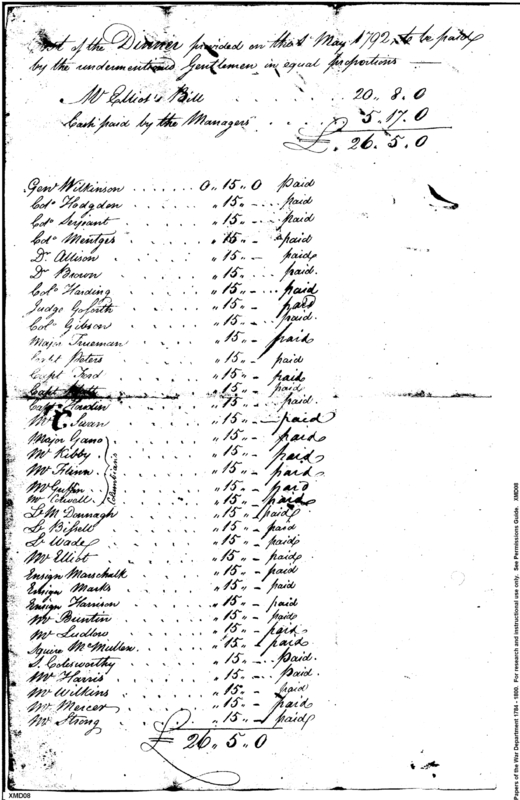 Cost of the Dinner provided on the 1st May 1792, to be paid
by the undermentioned Gentlemen in equal proportions
Mr Elliot's Bill .. 20 .. 8 . 0
Cash paid by the Managers .. 5 . 17 . 0
£. 26 . 5 . 0
Genl Wilkinson 0 .. 15 .. 0 paid
Colo Hodgdon .. 15 .. paid
Colo Serjeant .. 15 .. paid
Colo Mentges .. 15 .. paid
Dr. Allison .. 15 .. paid
Dr Brown .. 15 .. paid
Colo Harding .. 15 .. paid
Judge Goforth .. 15 .. paid
Colo Gibson .. 15 .. paid
Major Trueman .. 15 .. paid
Capt Peters .. 15 .. paid
Capt Ford .. 15 .. paid
Capt .. 15 .. paid
Capt Hardin .. 15 .. paid
Mr Swan .. 15 .. paid
Major Gano .. 15 .. paid
Mr Kibby .. 15 .. paid
Columbians
Mr Flinn .. 15 .. paid
Mr Griffin .. 15 .. paid
Mr .. 15 .. paid
Lt McDonnagh .. 15 .. paid
Lt Bissell .. 15 .. paid
Lt Wade .. 15 .. paid
Mr Elliot .. 15 .. paid
Ensign Marschalk .. 15 .. paid
Ensign Marks .. 15 .. paid
Ensign Harrison .. 15 .. paid
Mr Buntin .. 15 .. paid
Mr Ludlow .. 15 .. paid
Squire McMullen .. 15 .. paid
S. Colesworthy .. 15 .. paid
Mr Harris .. 15 .. paid
Mr Wilkins .. 15 .. paid
Mr Mercer .. 15 .. paid
Mr Strong .. 15 .. paid
£ 26 .. 5 .. 0
XMD08
Papers of the War Department 1784 - 1800. For research and instructional use only. See Permissions Guide. XMD08